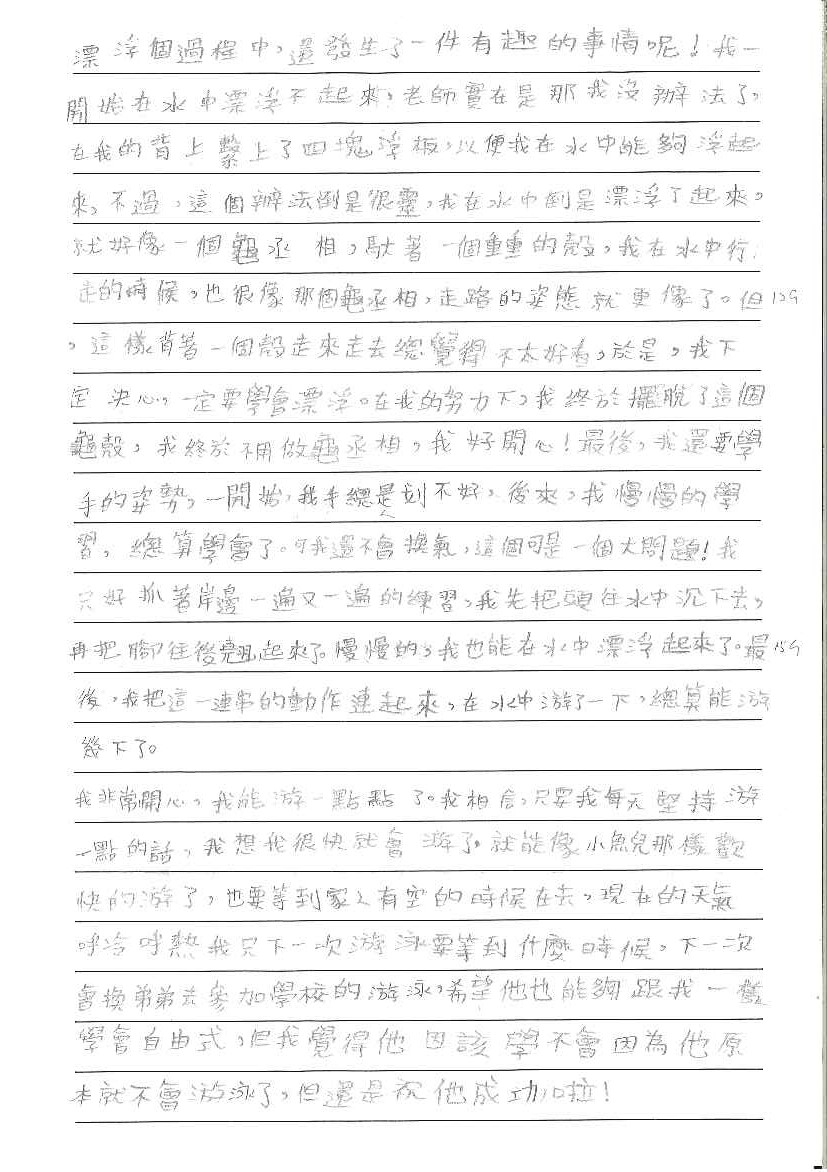 漂浮個過程中，還發生了一件有趣的事情呢！我一
開始在水中漂浮不起來，老師實在是那我沒辦法了，
在我的背上繫上了四塊浮板，以便我在水中能夠浮起
來。不過，這個辦法倒是很靈，我在水中倒是漂浮了起來。
就好像一個龜丞相，馱著一個重重的殼，我在水中行
走的時候，也很像那個龜丞相，走路的姿態就更像了。但 129
，這樣背著一個殼走來走去總覺得不太好看，於是，我下
定決心，一定要學會漂浮。在我的努力下，我終於擺脫了這個
龜殼，我終於不用做龜丞相，我好開心！最後，我還要學
手的姿勢，一開始，我手總是划不好，後來，我慢慢的學
習，總算學會了。可我還不會換氣，這個可是一個大問題！我
只好抓著岸邊一遍又一遍的練習，我先把頭往水中沉下去，
再把腳往後翹起來了。慢慢的，我也能在水中漂浮起來了。最 159
後，我把這一連串的動作連起來，在水中游了一下，總算能游
幾下了。
我非常開心，我能游一點點了。我相信，只要我每天堅持游
一點的話，我想我很快就會游了。就能像小魚兒那樣歡
快的游了，也要等到家人有空的時候在去，現在的天氣
呼冷呼熱我只下一次游泳要等到什麼時候，下一次
會換弟弟去參加學校的游泳，希望他也能夠跟我一樣
學會自由式，但我覺得他因該學不會因為他原
本就不會游泳了，但還是祝他成功啦！